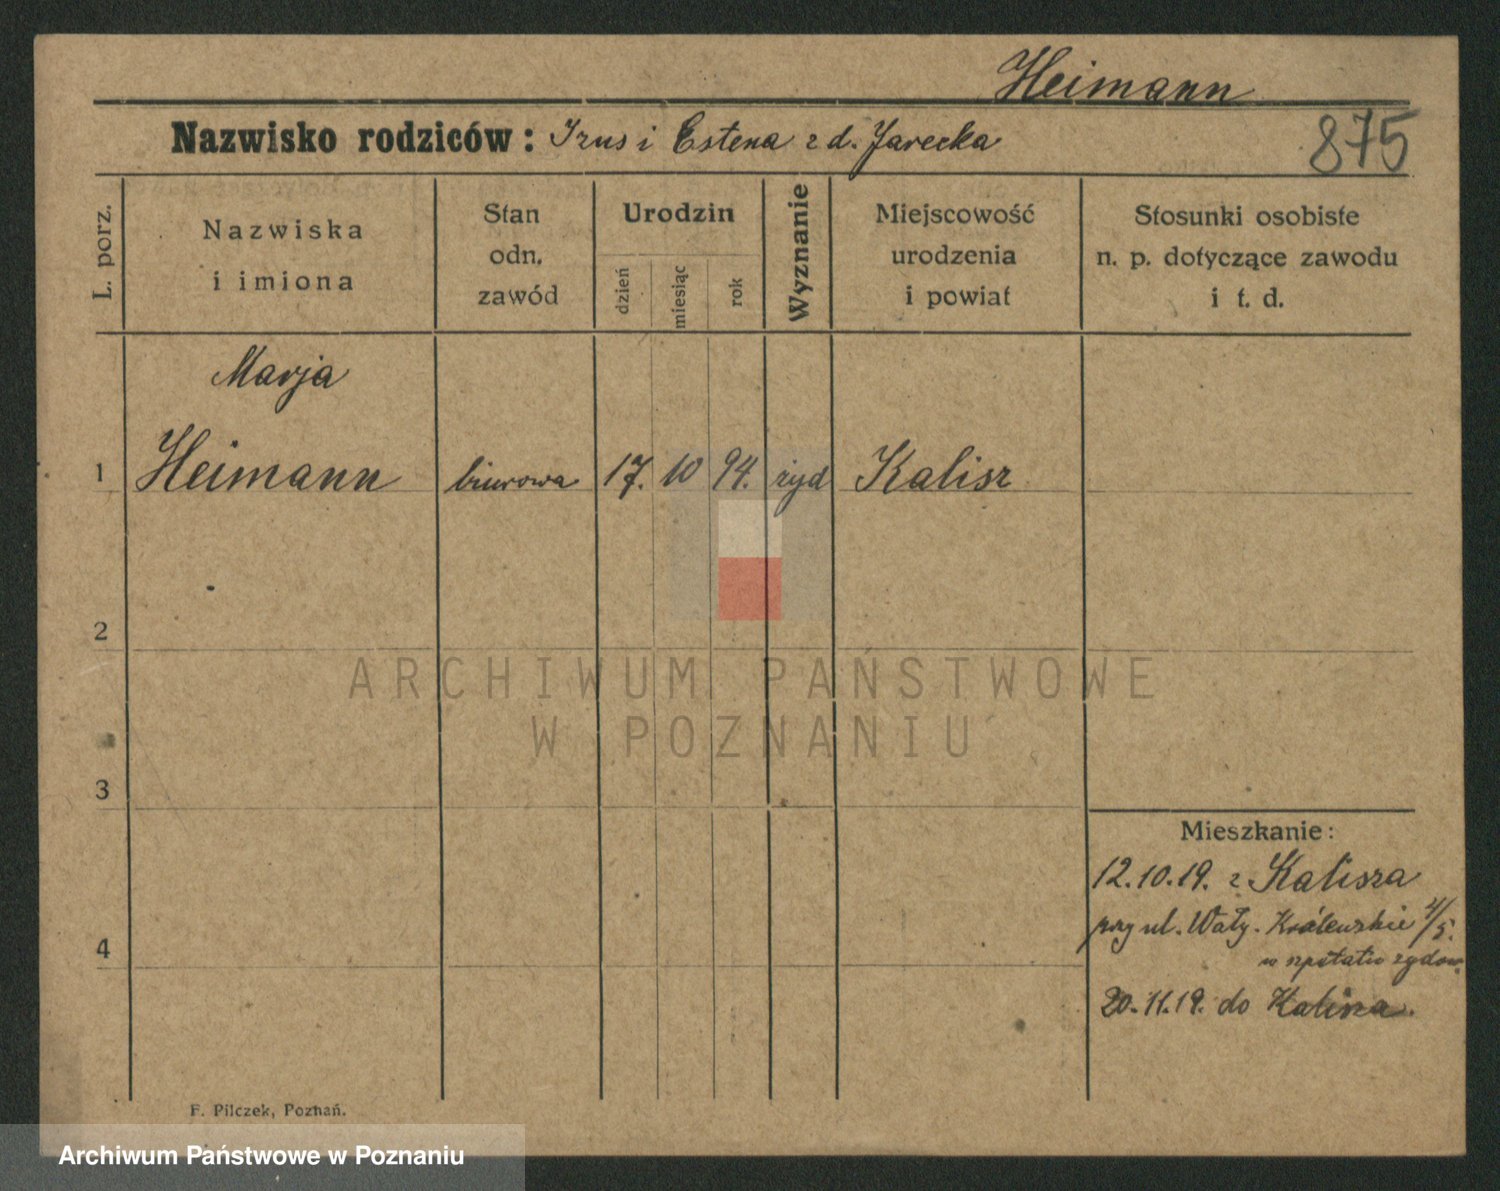 Heimann
Nazwisko rodziców: Izus i Estena z d. Jarecka
875
L. porz.
Nazwiska
i imiona
Stan
odn.
zawód
Urodzin
dzień
miesiąc
rok
Wyznanie
Miejscowość
urodzenia
i powiat
Stosunki osobiste
n. p. dotyczące zawodu
i t. d.
Marja
1 Heimann biurowa 17. 10 94. żyd Kalisz
2
ARCHIWUM PAŃSTWOWE
W POZNANIU
3
Mieszkanie:
12.10.19. z Kalisza
przy ul. Wały. Królewskie 4/5.
w szpitalu żydow.
4
20.11.19. do Kalisza.
F. Pilczek, Poznań.
Archiwum Państwowe w Poznaniu